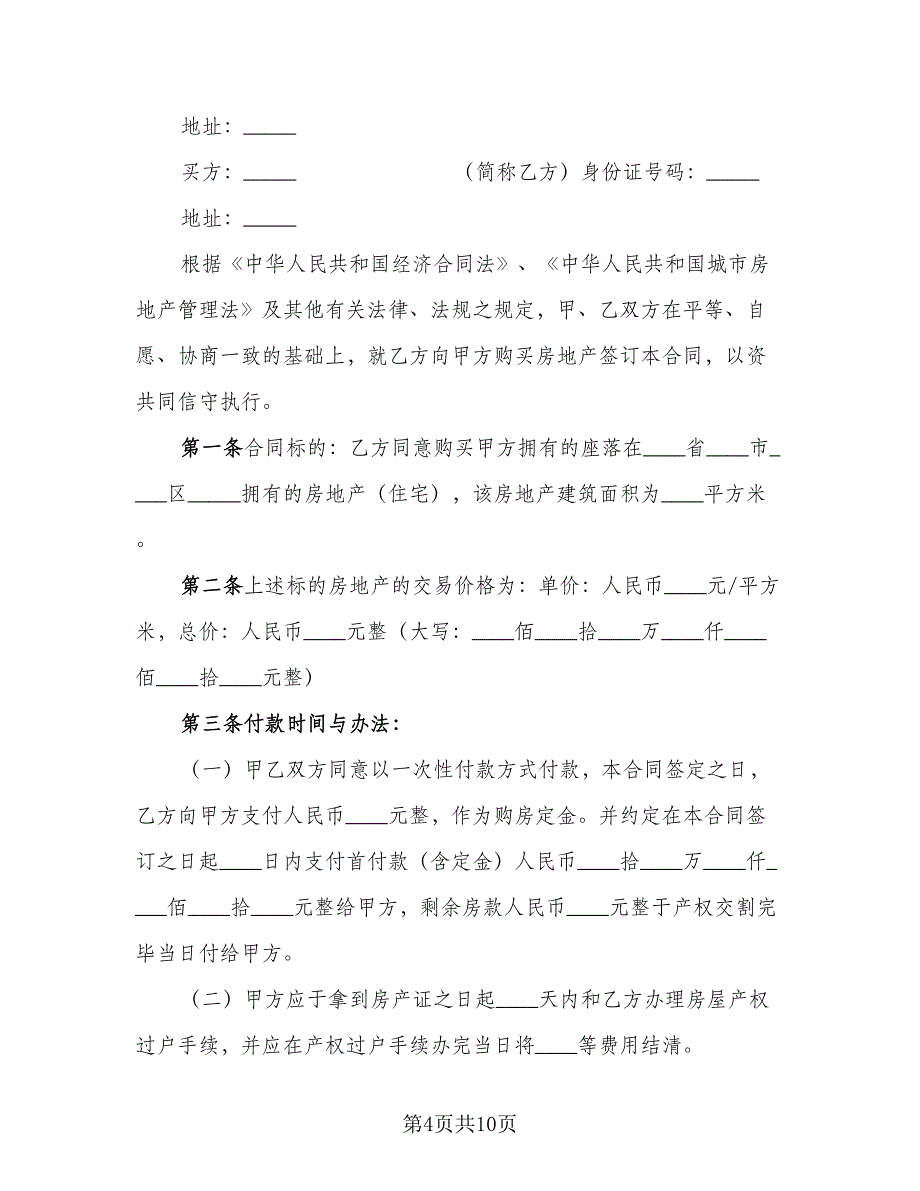 地址：_____
买方：_____ （简称乙方）身份证号码：_____
地址：_____
根据《中华人民共和国经济合同法》、《中华人民共和国城市房
地产管理法》及其他有关法律、法规之规定，甲、乙双方在平等、自
愿、协商一致的基础上，就乙方向甲方购买房地产签订本合同，以资
共同信守执行。
第一条合同标的：乙方同意购买甲方拥有的座落在____省____市_
___区_____拥有的房地产（住宅），该房地产建筑面积为____平方米
。
第二条上述标的房地产的交易价格为：单价：人民币____元/平方
米，总价：人民币____元整（大写：____佰____拾____万____仟____
佰____拾____元整）
第三条付款时间与办法：
（一）甲乙双方同意以一次性付款方式付款，本合同签定之日，
乙方向甲方支付人民币____元整，作为购房定金。并约定在本合同签
订之日起____日内支付首付款（含定金）人民币____拾____万____仟_
___佰____拾____元整给甲方，剩余房款人民币____元整于产权交割完
毕当日付给甲方。
（二）甲方应于拿到房产证之日起____天内和乙方办理房屋产权
过户手续，并应在产权过户手续办完当日将____等费用结清。
第4页共10页